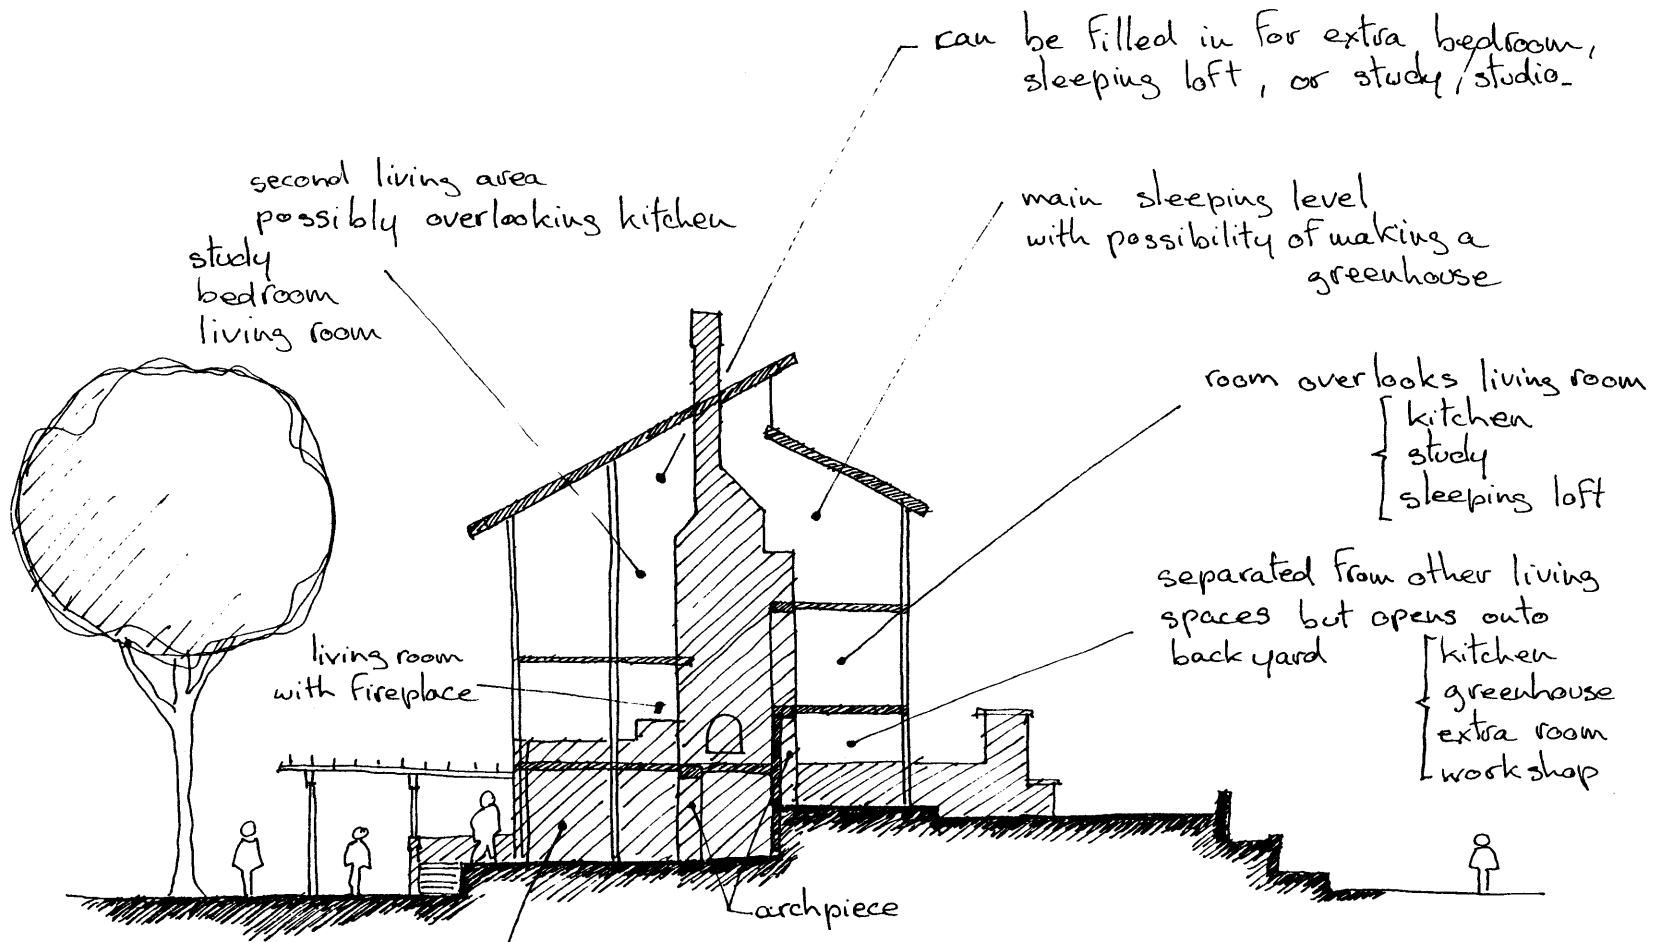 can be filled in for extra bedroom,
sleeping loft, or study/studio-
second living area
possibly overlooking kitchen
study
bedroom
living room
main sleeping level
with possibility of making a
greenhouse
room overlooks living room
kitchen
study
sleeping loft
separated from other living
spaces but opens onto
back yard
kitchen
greenhouse
extra room
workshop
living room
with fireplace
archpiece